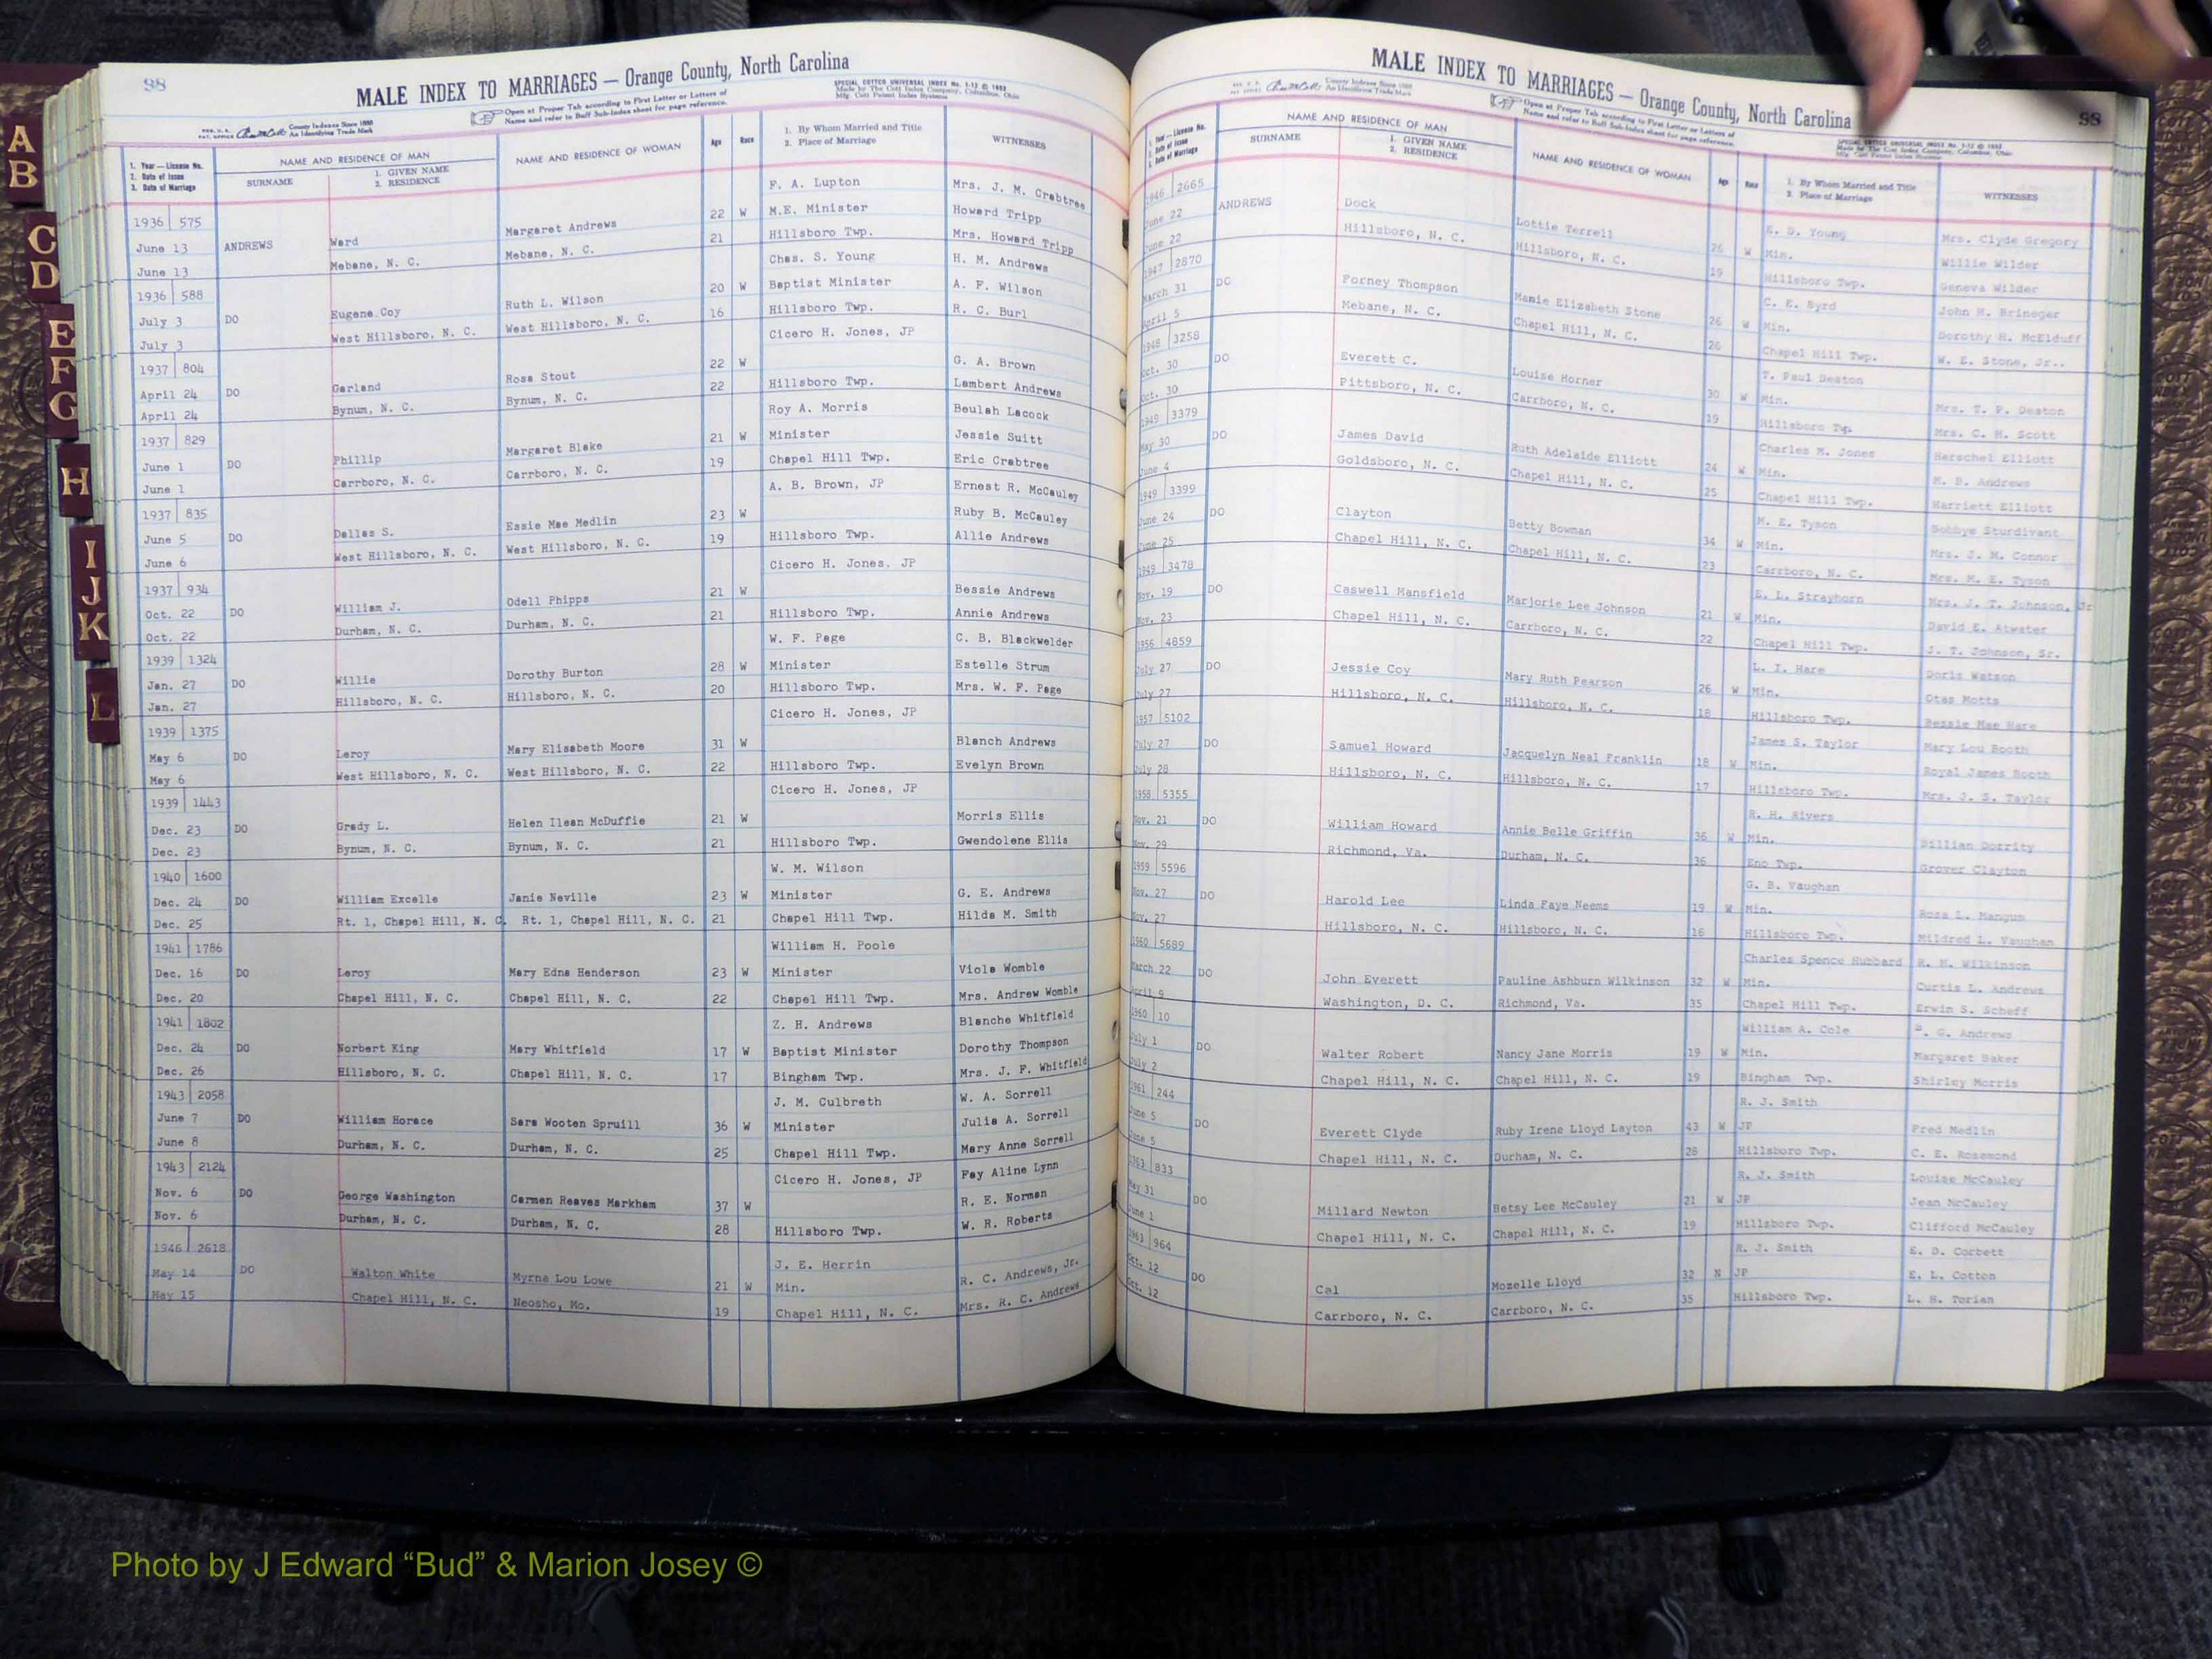 98
MALE INDEX TO MARRIAGES — Orange County, North Carolina
Open at Proper Tab according to First Letter or Letters of
Name and refer to Buff Sub-Index sheet for page reference.
SPECIAL COTTCO UNIVERSAL INDEX No. 1-12 © 1952
Made by The Cott Index Company, Columbus, Ohio
Mfg. Cott Patent Index Systems
County Indexes Since 1888
An Identifying Trade Mark
1. Year — License No.
2. Date of Issue
3. Date of Marriage
NAME AND RESIDENCE OF MAN
SURNAME
1. GIVEN NAME
2. RESIDENCE
NAME AND RESIDENCE OF WOMAN
Age Race
1. By Whom Married and Title
2. Place of Marriage
WITNESSES
1936 575 F. A. Lupton Mrs. J. M. Crabtree
June 13 ANDREWS Ward Margaret Andrews 22 W M.E. Minister Howard Tripp
June 13 Mebane, N. C. Mebane, N. C. 21 Hillsboro Twp. Mrs. Howard Tripp
1936 588 Chas. S. Young H. M. Andrews
July 3 DO Eugene Coy Ruth L. Wilson 20 W Baptist Minister A. F. Wilson
July 3 West Hillsboro, N. C. West Hillsboro, N. C. 16 Hillsboro Twp. R. C. Burl
1937 804 Cicero H. Jones, JP
April 24 DO Garland Rosa Stout 22 W G. A. Brown
April 24 Bynum, N. C. Bynum, N. C. 22 Hillsboro Twp. Lambert Andrews
1937 829 Roy A. Morris Beulah Lacock
June 1 DO Phillip Margaret Blake 21 W Minister Jessie Suitt
June 1 Carrboro, N. C. Carrboro, N. C. 19 Chapel Hill Twp. Eric Crabtree
1937 835 A. B. Brown, JP Ernest R. McCauley
June 5 DO Dallas S. Essie Mae Medlin 23 W Ruby B. McCauley
June 6 West Hillsboro, N. C. West Hillsboro, N. C. 19 Hillsboro Twp. Allie Andrews
1937 934 Cicero H. Jones, JP
Oct. 22 DO William J. Odell Phipps 21 W Bessie Andrews
Oct. 22 Durham, N. C. Durham, N. C. 21 Hillsboro Twp. Annie Andrews
1939 1324 W. F. Page C. B. Blackwelder
Jan. 27 DO Willie Dorothy Burton 28 W Minister Estelle Strum
Jan. 27 Hillsboro, N. C. Hillsboro, N. C. 20 Hillsboro Twp. Mrs. W. F. Page
1939 1375 Cicero H. Jones, JP
May 6 DO Leroy Mary Elisabeth Moore 31 W Blanch Andrews
May 6 West Hillsboro, N. C. West Hillsboro, N. C. 22 Hillsboro Twp. Evelyn Brown
1939 1443 Cicero H. Jones, JP
Dec. 23 DO Grady L. Helen Ilean McDuffie 21 W Morris Ellis
Dec. 23 Bynum, N. C. Bynum, N. C. 21 Hillsboro Twp. Gwendolene Ellis
1940 1600 W. M. Wilson
Dec. 24 DO William Excelle Janie Neville 23 W Minister G. E. Andrews
Dec. 25 Rt. 1, Chapel Hill, N. C. Rt. 1, Chapel Hill, N. C. 21 Chapel Hill Twp. Hilda M. Smith
1941 1786 William H. Poole
Dec. 16 DO Leroy Mary Edna Henderson 23 W Minister Viola Womble
Dec. 20 Chapel Hill, N. C. Chapel Hill, N. C. 22 Chapel Hill Twp. Mrs. Andrew Womble
1941 1802 Z. H. Andrews Blanche Whitfield
Dec. 24 DO Norbert King Mary Whitfield 17 W Baptist Minister Dorothy Thompson
Dec. 26 Hillsboro, N. C. Chapel Hill, N. C. 17 Bingham Twp. Mrs. J. F. Whitfield
1943 2058 J. M. Culbreth W. A. Sorrell
June 7 DO William Horace Sara Wooten Spruill 36 W Minister Julia A. Sorrell
June 8 Durham, N. C. Durham, N. C. 25 Chapel Hill Twp. Mary Anne Sorrell
1943 2124 Cicero H. Jones, JP Fay Aline Lynn
Nov. 6 DO George Washington Carmen Reaves Markham 37 W R. E. Norman
Nov. 6 Durham, N. C. Durham, N. C. 28 Hillsboro Twp. W. R. Roberts
1946 2618 J. E. Herrin
May 14 DO Walton White Myrna Lou Lowe 21 W Min. R. C. Andrews, Jr.
May 15 Chapel Hill, N. C. Neosho, Mo. 19 Chapel Hill, N. C. Mrs. R. C. Andrews
MALE INDEX TO MARRIAGES — Orange County, North Carolina
98
Open at Proper Tab according to First Letter or Letters of
Name and refer to Buff Sub-Index sheet for page reference.
SPECIAL COTTCO UNIVERSAL INDEX No. 1-12 © 1952
Made by The Cott Index Company, Columbus, Ohio
Mfg. Cott Patent Index Systems
County Indexes Since 1888
An Identifying Trade Mark
1. Year — License No.
2. Date of Issue
3. Date of Marriage
NAME AND RESIDENCE OF MAN
SURNAME
1. GIVEN NAME
2. RESIDENCE
NAME AND RESIDENCE OF WOMAN
Age Race
1. By Whom Married and Title
2. Place of Marriage
WITNESSES
1946 2665 Young Mrs. Clyde Gregory
June 22 ANDREWS Dock Lottie Terrell 26 W Min. Willie Wilder
June 22 Hillsboro, N. C. Hillsboro, N. C. 19 Hillsboro Twp. Geneva Wilder
1947 2870 C. E. Byrd John H. Brineger
March 31 DO Forney Thompson Mamie Elizabeth Stone 26 W Min. Dorothy H. McElduff
April 5 Mebane, N. C. Chapel Hill, N. C. 26 Chapel Hill Twp. W. E. Stone, Jr..
1948 3258 T. Paul Deaton
Oct. 30 DO Everett C. Louise Horner 30 W Min. Mrs. T. P. Deaton
Oct. 30 Pittsboro, N. C. Carrboro, N. C. 19 Hillsboro Twp. Mrs. C. H. Scott
1949 3379 Charles M. Jones Herschel Elliott
May 30 DO James David Ruth Adelaide Elliott 24 W Min. M. B. Andrews
June 4 Goldsboro, N. C. Chapel Hill, N. C. 25 Chapel Hill Twp. Harriett Elliott
1949 3399 M. E. Tyson Bobbye Sturdivant
June 24 DO Clayton Betty Bowman 34 W Min. Mrs. J. M. Connor
June 25 Chapel Hill, N. C. Chapel Hill, N. C. 23 Carrboro, N. C. Mrs. M. E. Tyson
1949 3478 E. L. Strayhorn Mrs. J. T. Johnson, Jr
Nov. 19 DO Caswell Mansfield Marjorie Lee Johnson 21 W Min. David E. Atwater
Nov. 23 Chapel Hill, N. C. Carrboro, N. C. 22 Chapel Hill Twp. J. T. Johnson, Sr.
1956 4859 L. I. Hare Doris Watson
July 27 DO Jessie Coy Mary Ruth Pearson 26 W Min. Otas Motts
July 27 Hillsboro, N. C. Hillsboro, N. C. 18 Hillsboro Twp. Bessie Mae Hare
1957 5102 James S. Taylor Mary Lou Booth
July 27 DO Samuel Howard Jacquelyn Neal Franklin 18 W Min. Royal James Booth
July 28 Hillsboro, N. C. Hillsboro, N. C. 17 Hillsboro Twp. Mrs. J. S. Taylor
1958 5355 R. H. Rivers
Nov. 21 DO William Howard Annie Belle Griffin 36 W Min. Dorrity
Nov. 29 Richmond, Va. Durham, N. C. 36 Eno Twp. Grover Clayton
1959 5596 G. B. Vaughan
Nov. 27 DO Harold Lee Linda Faye Neems 19 W Min. Rosa L. Mangum
Nov. 27 Hillsboro, N. C. Hillsboro, N. C. 16 Hillsboro Twp. Mildred L. Vaughan
1960 5689 Charles Spence Hubbard R. M. Wilkinson
March 22 DO John Everett Pauline Ashburn Wilkinson 32 W Min. Curtis L. Andrews
April 9 Washington, D. C. Richmond, Va. 35 Chapel Hill Twp. Erwin S. Scheff
1960 10 William A. Cole G. Andrews
July 1 DO Walter Robert Nancy Jane Morris 19 W Min. Margaret Baker
July 2 Chapel Hill, N. C. Chapel Hill, N. C. 19 Bingham Twp. Shirley Morris
1961 244 R. J. Smith
June 5 DO Everett Clyde Ruby Irene Lloyd Layton 43 W JP Fred Medlin
June 5 Chapel Hill, N. C. Durham, N. C. 28 Hillsboro Twp. C. E. Rosemond
1963 833 R. J. Smith Louise McCauley
May 31 DO Millard Newton Betsy Lee McCauley 21 W JP Jean McCauley
June 1 Chapel Hill, N. C. Chapel Hill, N. C. 19 Hillsboro Twp. Clifford McCauley
1963 964 R. J. Smith E. D. Corbett
Oct. 12 DO Cal Mozelle Lloyd 32 N JP E. L. Cotton
Oct. 12 Carrboro, N. C. Carrboro, N. C. 35 Hillsboro Twp. L. H. Torian
A
B
C
D
E
F
G
H
I
J
K
L
Photo by J Edward “Bud” & Marion Josey ©